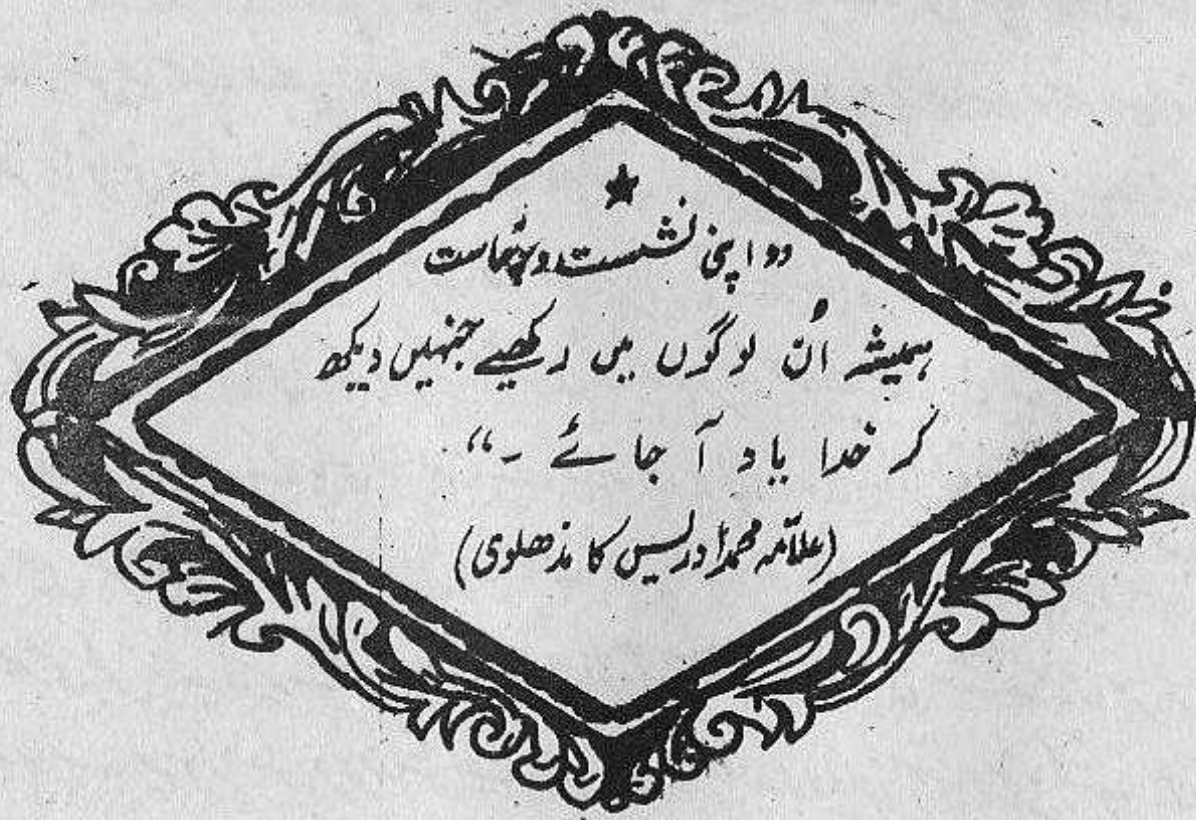 ★
”اپنی نشست و برخاست
ہمیشہ اُن لوگوں میں رکھیے جنہیں دیکھ
کر خدا یاد آ جائے۔“
(علامّہ محمد ادریس کاندھلوی)